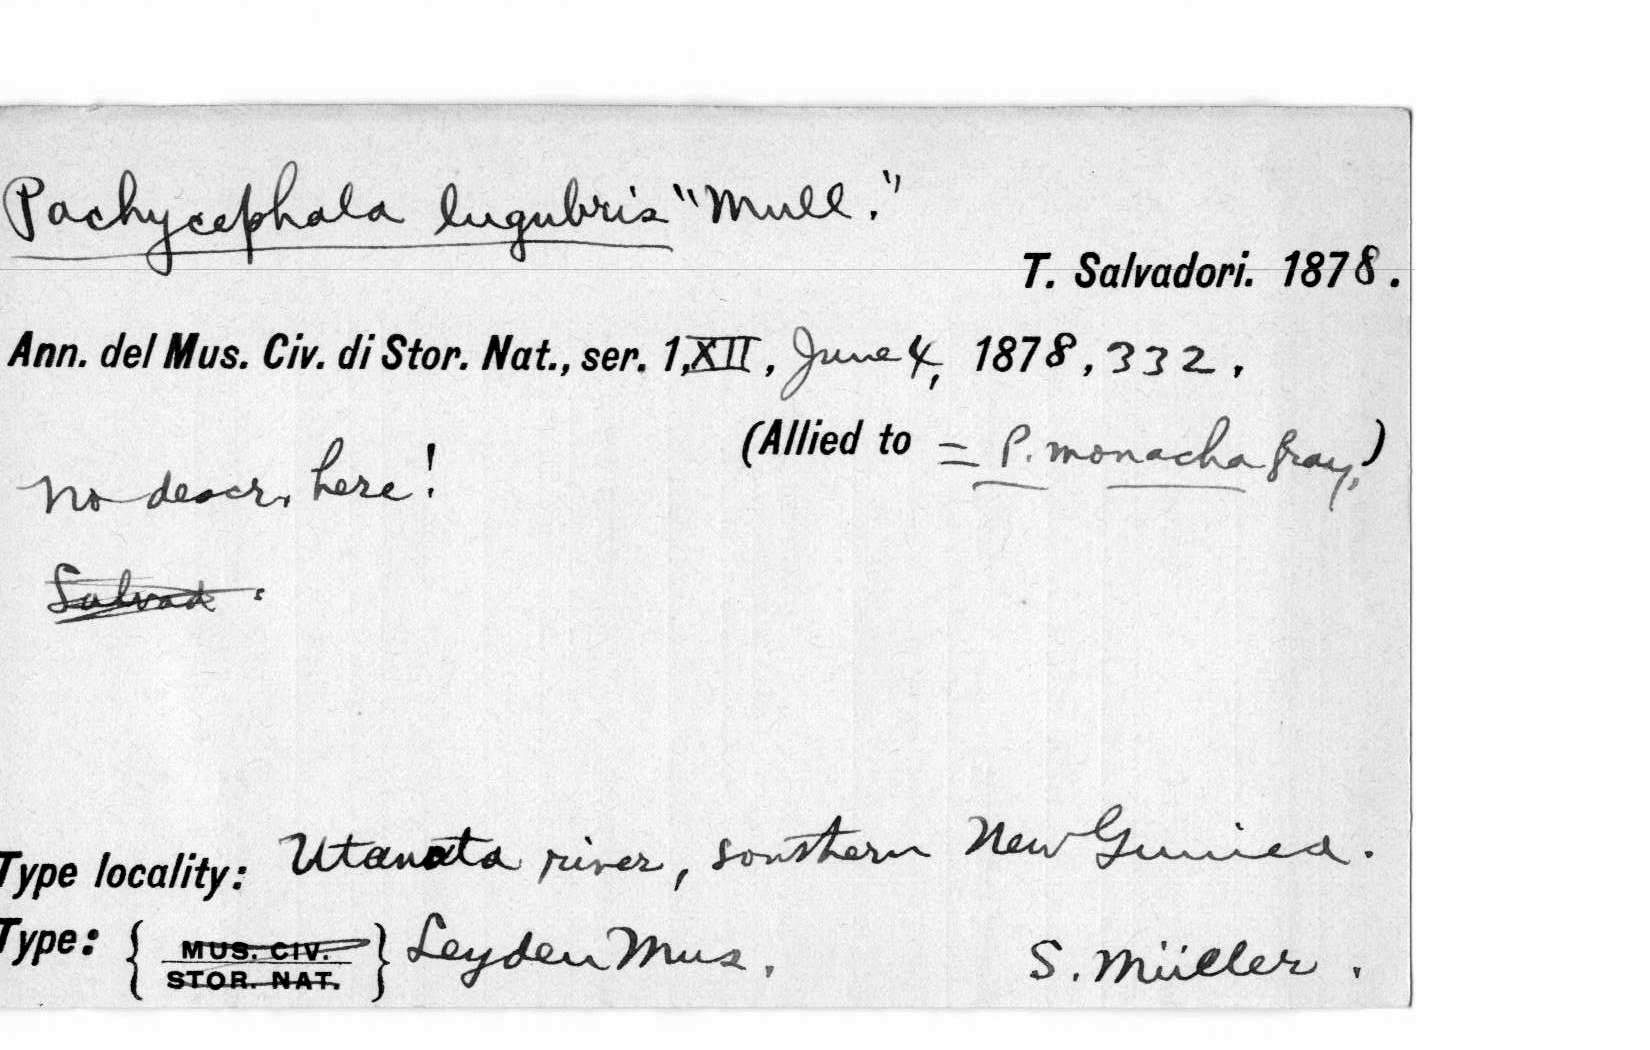 Pachycephala lugubris "Mull."
T. Salvadori. 1878.
Ann. del Mus. Civ. di Stor. Nat., ser. 1, XII, June 4, 1878, 332.
(Allied to = P. monacha Gray.)
No descr. here!
Salvad.
Type locality: Utanata river, southern New Guinea.
Type: { MUS. CIV. STOR. NAT. } Leyden Mus. S. Müller.